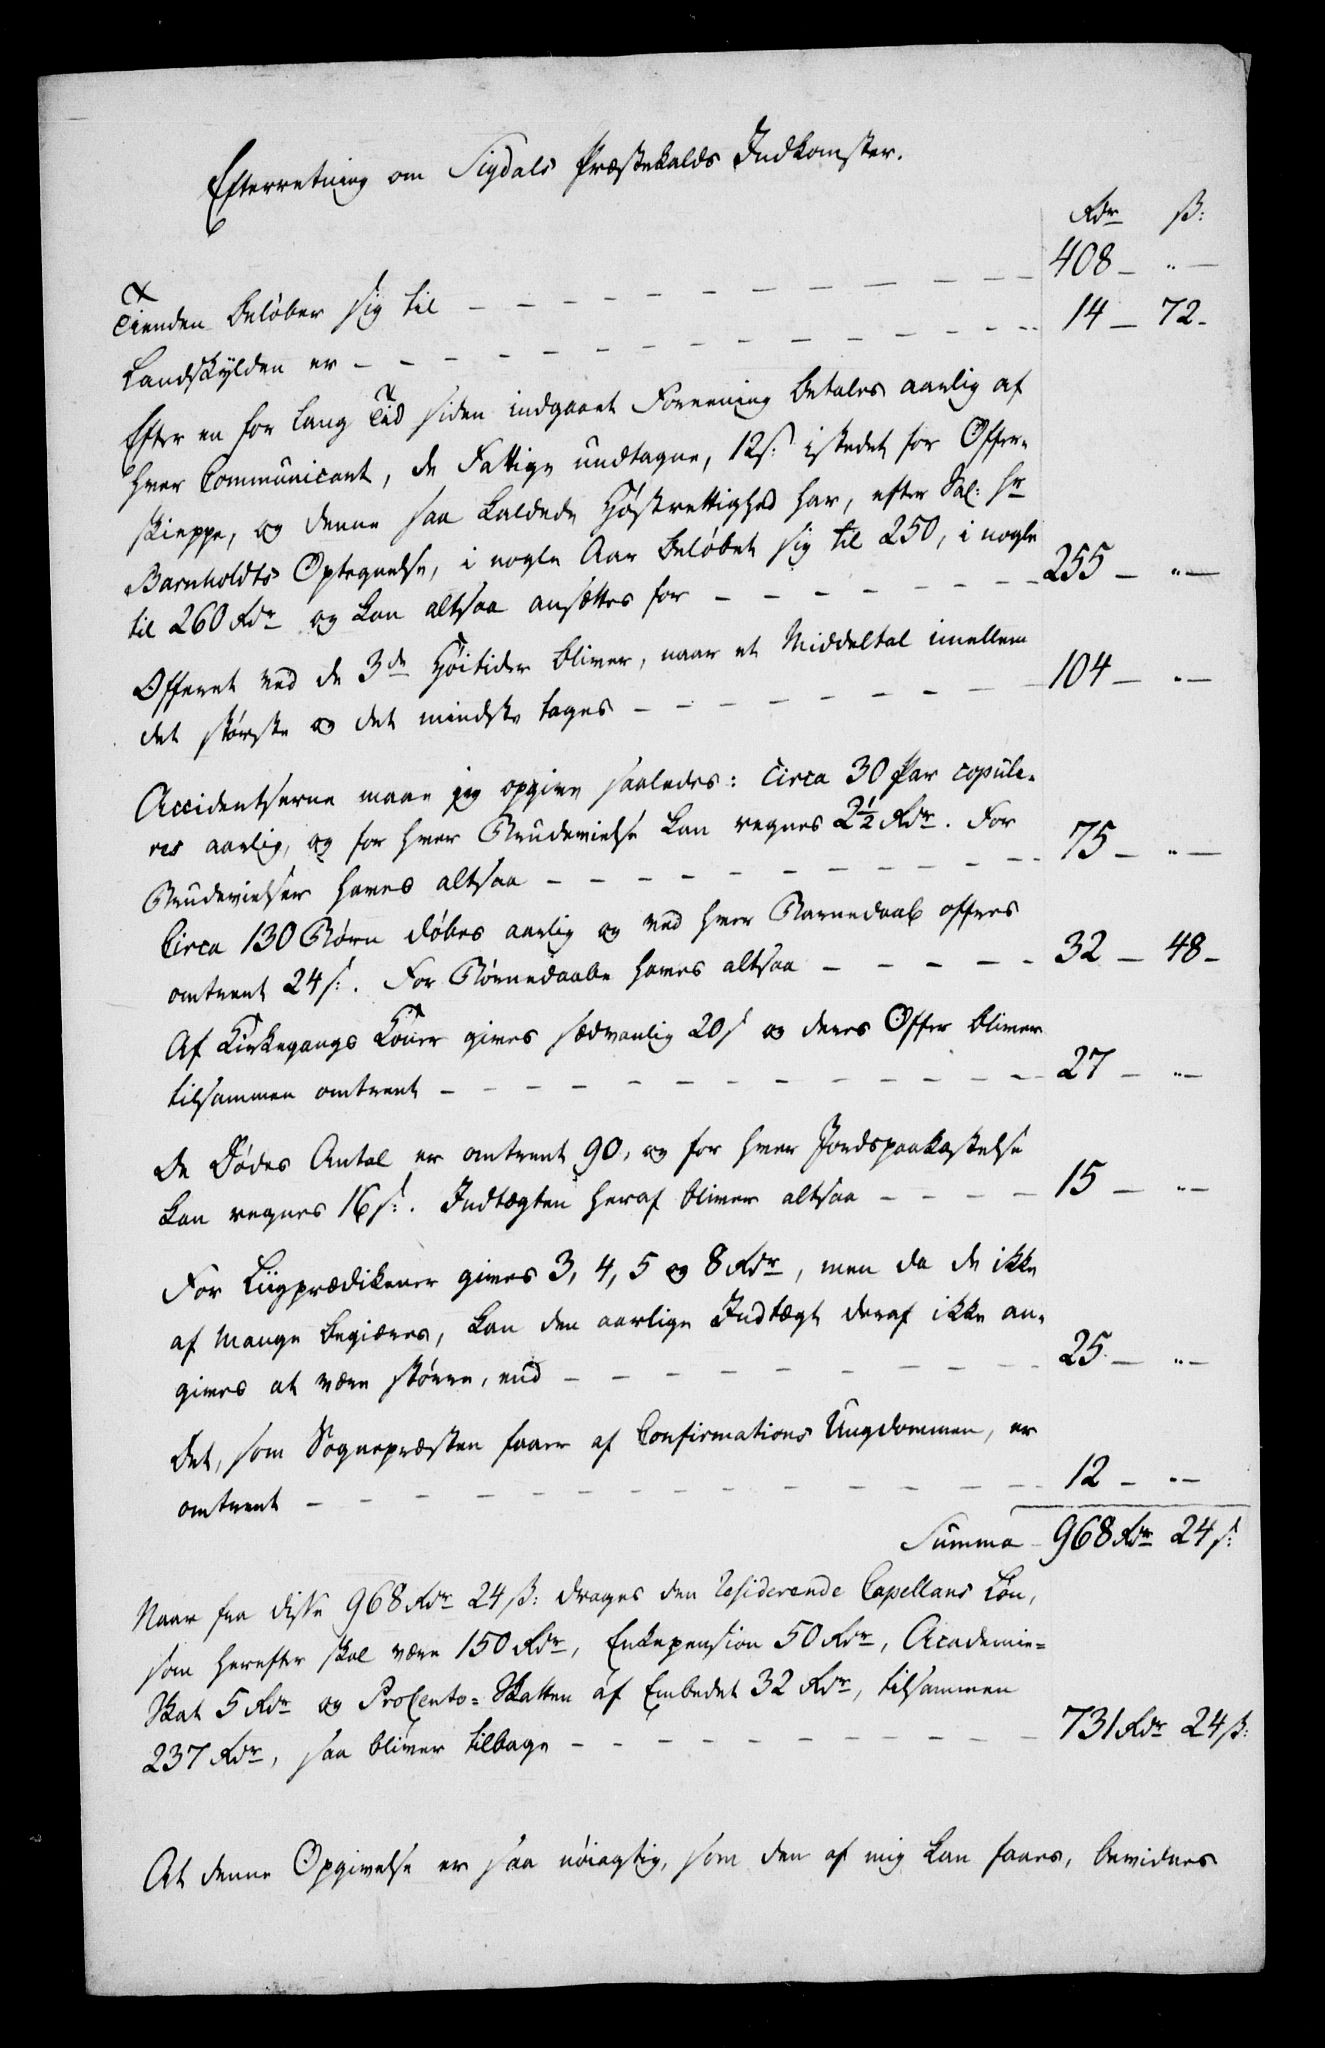 Efterretning om Sigdals Præstekalds Indkomster.
Rdr ß:
Tienden beløber sig til – – – – – – – – – – – 408 – „ –
Landskylden er – – – – – – – – – – – – – 14 – 72 –
Efter en for lang Tid siden indgaaet Forening betales aarlig af
hver Communicant, de Fattige undtagne, 12 s: istedet for Offer-
skieppe, og denne saa kaldede Høstrettighed har, efter Sal: Hr
Barnholdts Optegnelse, i nogle Aar beløbet sig til 250, i nogle
til 260 Rdr og kan altsaa ansættes for – – – – – – – 255 – „ –
Offeret ved de 3de Høitider bliver, naar et Middeltal imellem
det største og det mindste tages – – – – – – – – 104 – „ –
Accidentserne maae jeg opgive saaledes: circa 30 Par copule-
res aarlig, og for hver Brudevielse kan regnes 2½ Rdr. For
Brudevielser haves altsaa – – – – – – – – – – 75 – „ –
Circa 130 Børn døbes aarlig og ved hver Barnedaab offres
omtrent 24 s:. For Børnedaabe haves altsaa – – – – – 32 – 48 –
Af Kirkegangs Koner gives sædvanlig 20 s og deres Offer bliver
tilsammen omtrent – – – – – – – – – – – – 27 – „ –
De Dødes Antal er omtrent 90, og for hver Jordspaakastelse
kan regnes 16 s:. Indtægten heraf bliver altsaa – – – – 15 – „ –
For Liigprædikener gives 3, 4, 5 og 8 Rdr, men da de ikke
af mange begiæres, kan den aarlige Indtægt deraf ikke an-
gives at være større, end – – – – – – – – – – 25 – „ –
Det, som Sognepræsten faaer af Confirmations Ungdommen, er
omtrent – – – – – – – – – – – – – – 12 – „ –
Summa 968 Rdr 24 s:
Naar fra disse 968 Rdr 24 ß: drages den residerende Capellans Løn,
som herefter skal være 150 Rdr, Enkepension 50 Rdr, Academie-
Skat 5 Rdr og ProCento-Skatten af Embedet 32 Rdr, tilsammen
237 Rdr, saa bliver tilbage – – – – – – – – – 731 Rdr 24 ß:
At denne Opgivelse er saa nøiagtig, som den af mig kan faaes, bevidnes